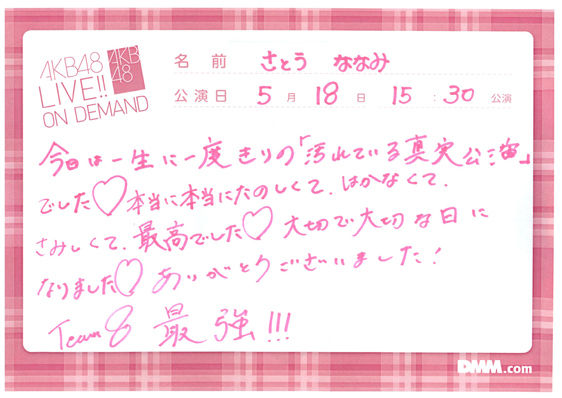 AKB48
LIVE!!
ON DEMAND
AKB
48
名前 さとう ななみ
公演日 5月 18日 15:30 公演
今日は一生に一度きりの「汚れている真実公演」
でした♡本当に本当にたのしくて、はかなくて、
さみしくて、最高でした♡大切で大切な日に
なりました♡ありがとうございました!
Team 8 最強!!!
DMM.com